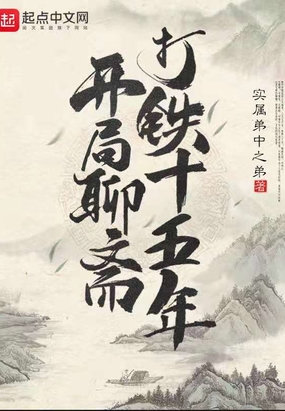 起点
起点中文网
打铁十五年
开局聊斋
实属弟中之弟 著